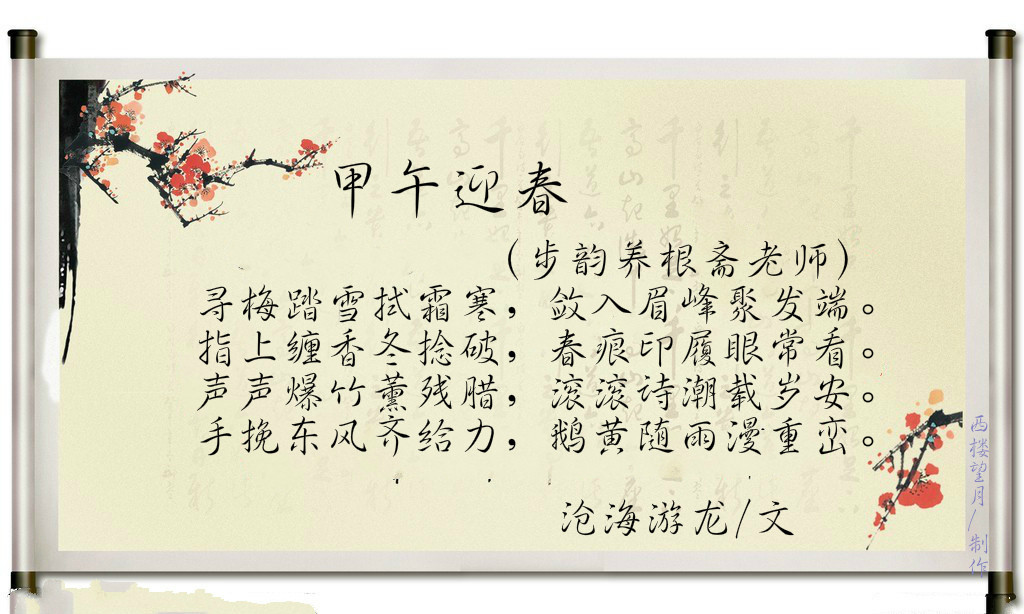 甲午迎春
(步韵养根斋老师)
寻梅踏雪拭霜寒，敛入眉峰聚发端。
指上缠香冬捻破，春痕印履眼常看。
声声爆竹薰残腊，滚滚诗潮载岁安。
手挽东风齐给力，鹅黄随雨漫重峦。
沧海游龙/文
西楼望月/制作